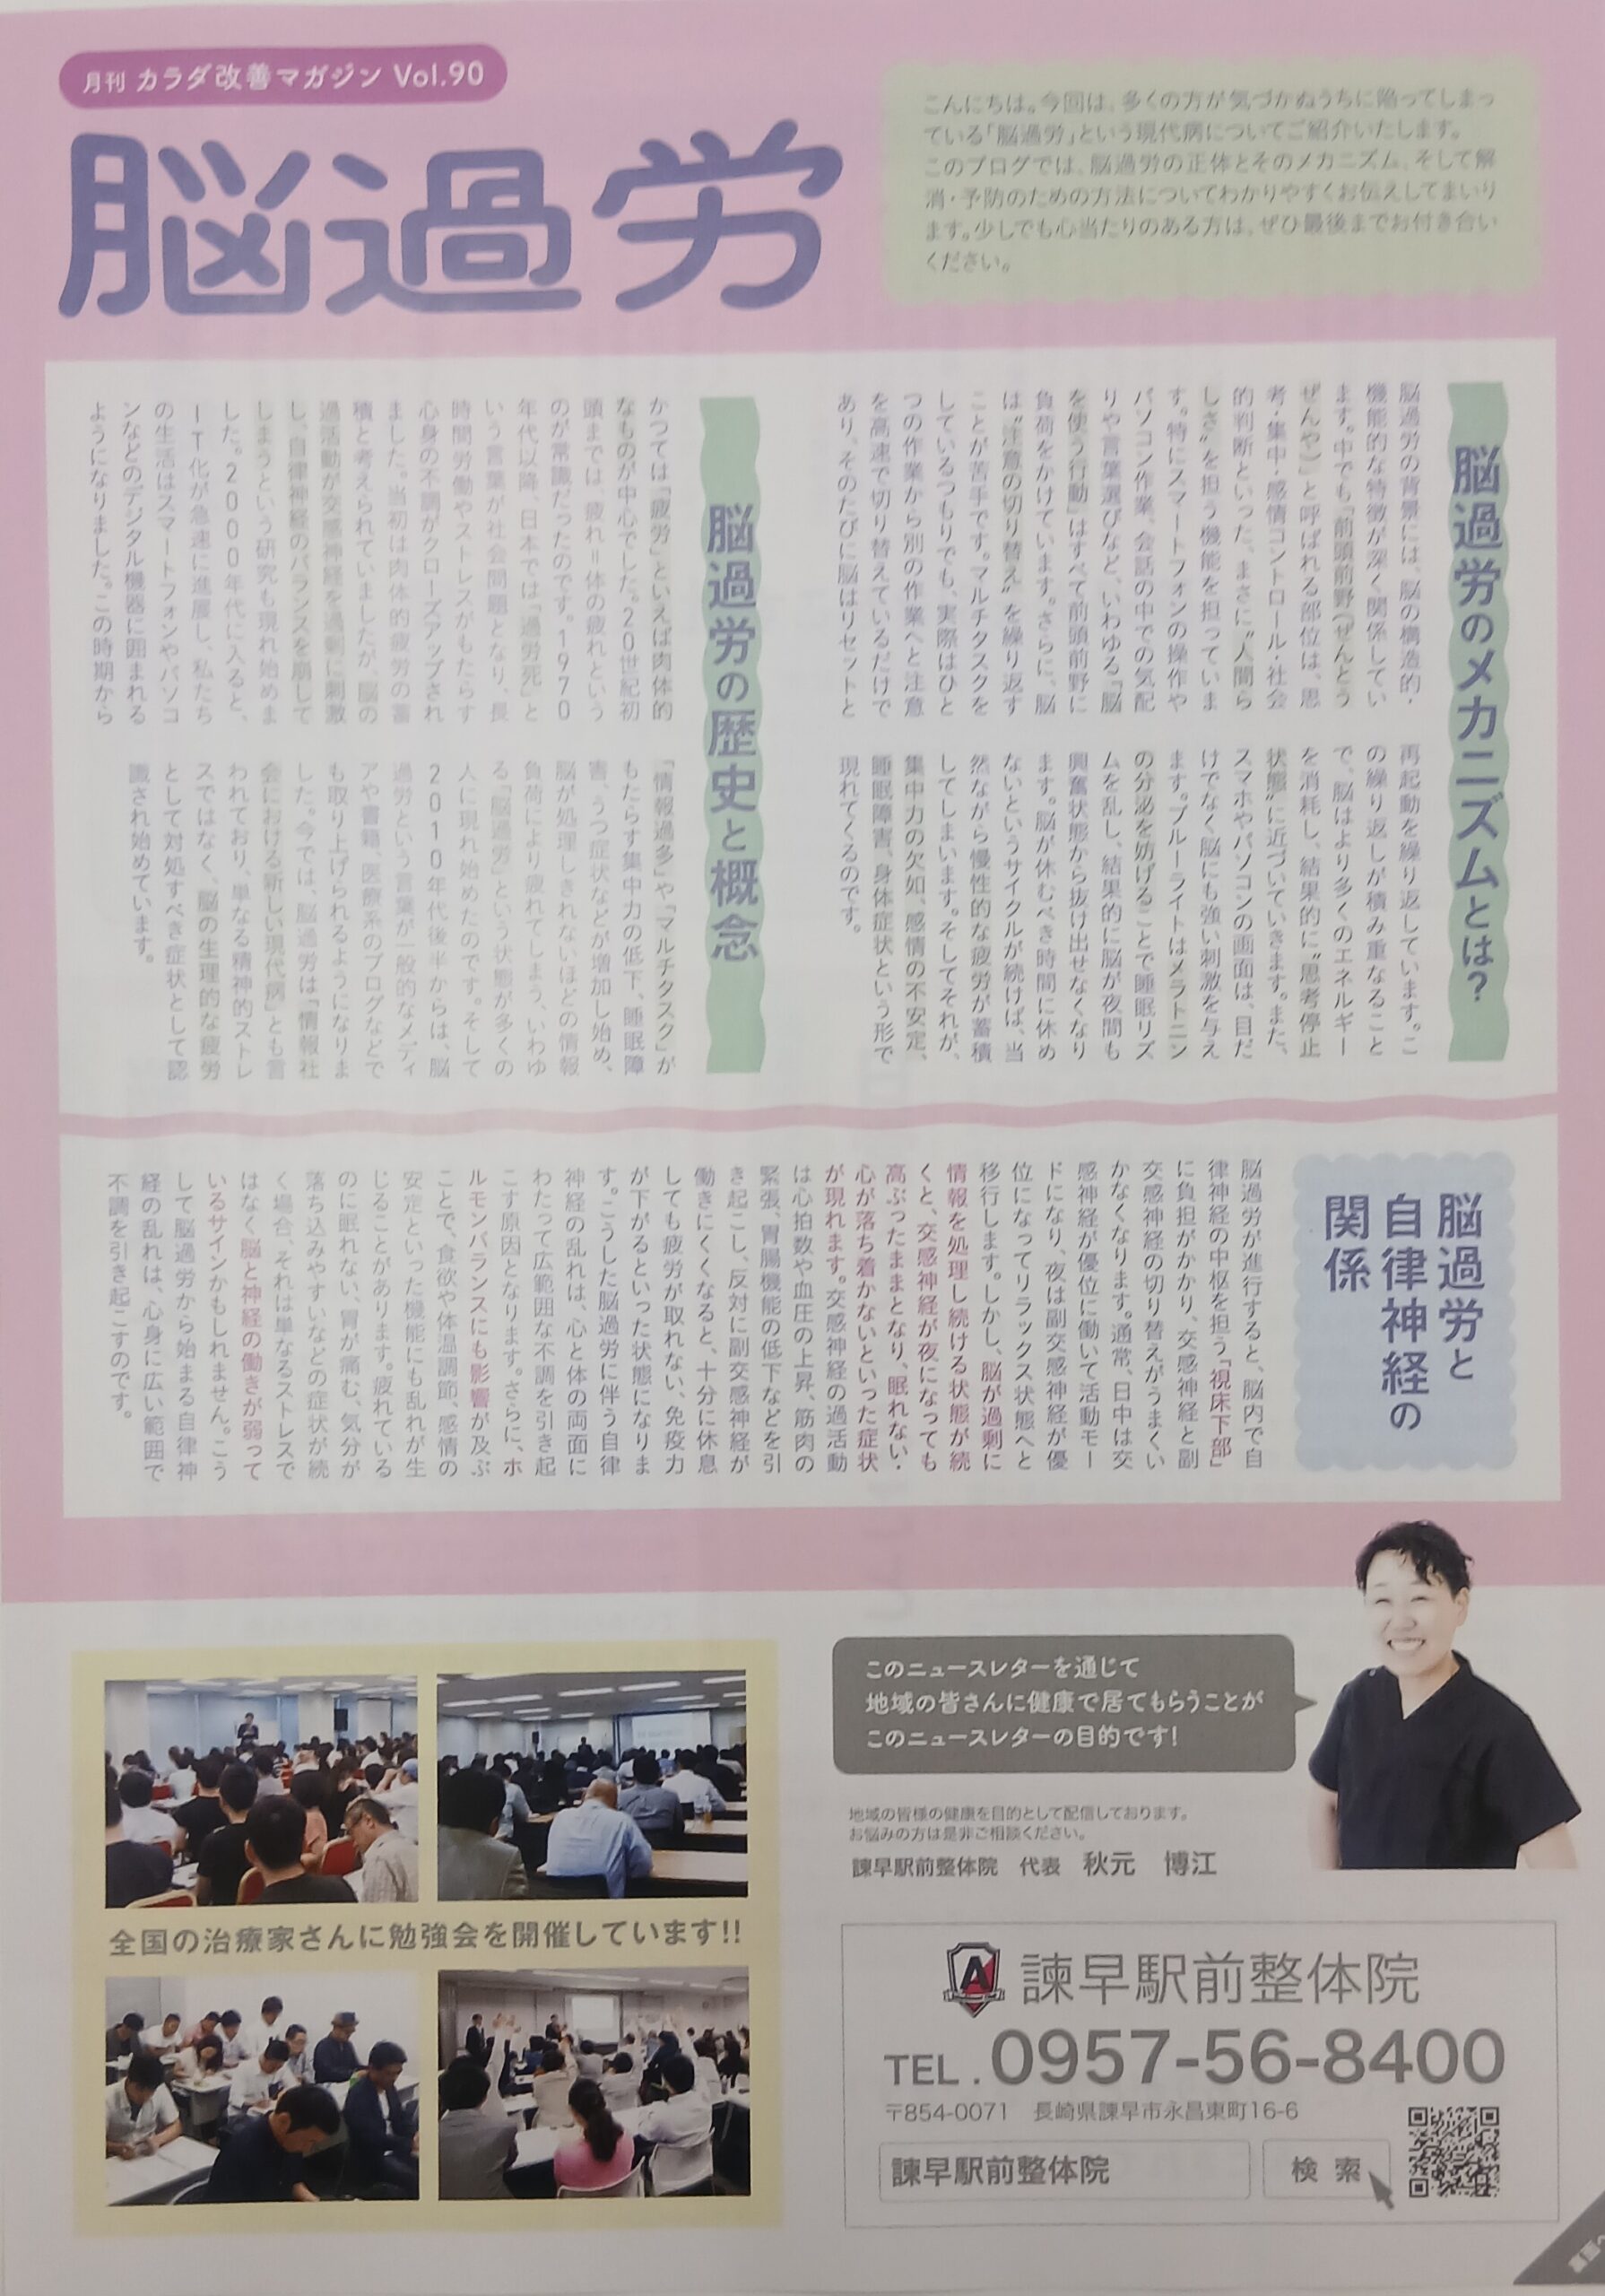 月刊 カラダ改善マガジン Vol.90
脳過労
こんにちは。今回は、多くの方が気づかぬうちに陥ってしまっ
ている「脳過労」という現代病についてご紹介いたします。
このブログでは、脳過労の正体とそのメカニズム、そして解
消・予防のための方法についてわかりやすくお伝えしてまいり
ます。少しでも心当たりのある方は、ぜひ最後までお付き合い
ください。
脳過労のメカニズムとは?
脳過労の背景には、脳の構造的・
機能的な特徴が深く関係してい
ます。中でも「前頭前野(ぜんとう
ぜんや)」と呼ばれる部位は、思
考・集中・感情コントロール・社会
的判断といった、まさに“人間ら
しさ”を担う機能を担っていま
す。特にスマートフォンの操作や
パソコン作業、会話の中での気配
りや言葉選びなど、いわゆる「脳
を使う行動」はすべて前頭前野に
負荷をかけています。さらに、脳
は“注意の切り替え”を繰り返す
ことが苦手です。マルチタスクを
しているつもりでも、実際はひと
つの作業から別の作業へと注意
を高速で切り替えているだけで
あり、そのたびに脳はリセットと
再起動を繰り返しています。こ
の繰り返しが積み重なること
で、脳はより多くのエネルギー
を消耗し、結果的に“思考停止
状態”に近づいていきます。また、
スマホやパソコンの画面は、目だ
けでなく脳にも強い刺激を与え
ます。ブルーライトはメラトニン
の分泌を妨げることで睡眠リズ
ムを乱し、結果的に脳が夜間も
興奮状態から抜け出せなくなり
ます。脳が休むべき時間に休め
ないというサイクルが続けば、当
然ながら慢性的な疲労が蓄積
してしまいます。そしてそれが、
集中力の欠如、感情の不安定、
睡眠障害、身体症状という形で
現れてくるのです。
脳過労の歴史と概念
かつては「疲労」といえば肉体的
なものが中心でした。20世紀初
頭までは、疲れ＝体の疲れという
のが常識だったのです。1970
年代以降、日本では「過労死」と
いう言葉が社会問題となり、長
時間労働やストレスがもたらす
心身の不調がクローズアップされ
ました。当初は肉体的疲労の蓄
積と考えられていましたが、脳の
過活動が交感神経を過剰に刺激
し、自律神経のバランスを崩して
しまうという研究も現れ始めま
した。2000年代に入ると、
IT化が急速に進展し、私たち
の生活はスマートフォンやパソコ
ンなどのデジタル機器に囲まれる
ようになりました。この時期から
「情報過多」や「マルチタスク」が
もたらす集中力の低下、睡眠障
害、うつ症状などが増加し始め、
脳が処理しきれないほどの情報
負荷により疲れてしまう、いわゆ
る「脳過労」という状態が多くの
人に現れ始めたのです。そして
2010年代後半からは、脳
過労という言葉が一般的なメディ
アや書籍、医療系のブログなどで
も取り上げられるようになりま
した。今では、脳過労は「情報社
会における新しい現代病」とも言
われており、単なる精神的ストレ
スではなく、脳の生理的な疲労
として対処すべき症状として認
識され始めています。
脳過労と
自律神経の
関係
脳過労が進行すると、脳内で自
律神経の中枢を担う「視床下部」
に負担がかかり、交感神経と副
交感神経の切り替えがうまくい
かなくなります。通常、日中は交
感神経が優位に働いて活動モー
ドになり、夜は副交感神経が優
位になってリラックス状態へと
移行します。しかし、脳が過剰に
情報を処理し続ける状態が続
くと、交感神経が夜になっても
高ぶったままとなり、眠れない・
心が落ち着かないといった症状
が現れます。交感神経の過活動
は心拍数や血圧の上昇、筋肉の
緊張、胃腸機能の低下などを引
き起こし、反対に副交感神経が
働きにくくなると、十分に休息
しても疲労が取れない、免疫力
が下がるといった状態になりま
す。こうした脳過労に伴う自律
神経の乱れは、心と体の両面に
わたって広範囲な不調を引き起
こす原因となります。さらに、ホ
ルモンバランスにも影響が及ぶ
ことで、食欲や体温調節、感情の
安定といった機能にも乱れが生
じることがあります。疲れている
のに眠れない、胃が痛む、気分が
落ち込みやすいなどの症状が続
く場合、それは単なるストレスで
はなく脳と神経の働きが弱って
いるサインかもしれません。こう
して脳過労から始まる自律神
経の乱れは、心身に広い範囲で
不調を引き起こすのです。
全国の治療家さんに勉強会を開催しています!!
このニュースレターを通じて
地域の皆さんに健康で居てもらうことが
このニュースレターの目的です!
地域の皆様の健康を目的として配信しております。
お悩みの方は是非ご相談ください。
諫早駅前整体院 代表 秋元 博江
A
諫早駅前整体院
TEL . 0957-56-8400
〒854-0071 長崎県諫早市永昌東町16-6
諫早駅前整体院
検 索